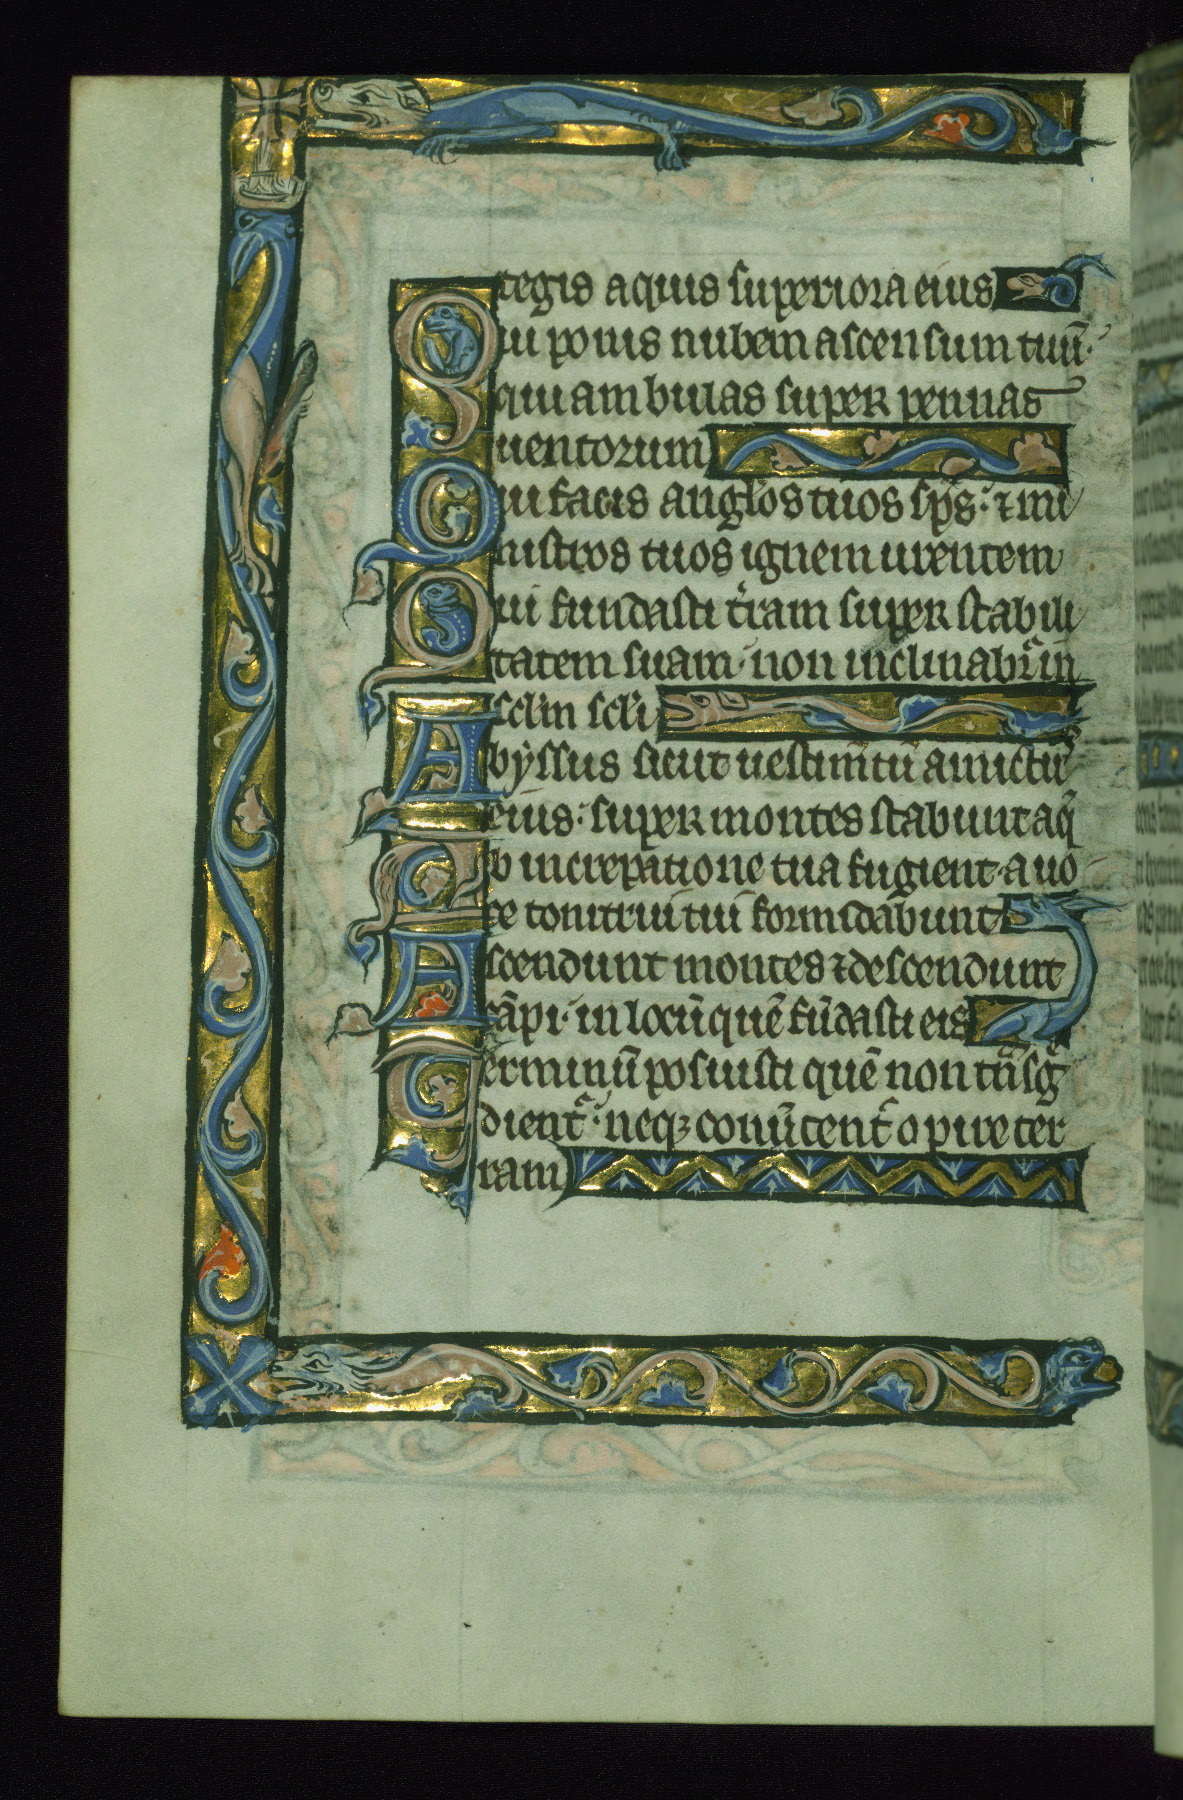 tegis aquis superiora eius
Qui ponis nubem ascensum tuū·
qui ambulas super pennas
uentorum
Qui facis angl̄os tuos sp̄s· ⁊ mi
nistros tuos ignem urentem
Qui fundasti t̄ram super stabili
tatem suam· non inclinabr̄ in
sc̄lm sc̄li
Abyssus sicut uestim̄tū amictꝰ
eius· super montes stabunt aq̄
Ab increpatione tua fugient· a uo
ce tonitrui tui formidabunt
Ascendunt montes ⁊ descendunt
cāpi· in locū quē fūdasti eis
Terminū posuisti quē non tͣnsgͤ
dient̄· neqꝫ conūtent̄ opire ter
ram